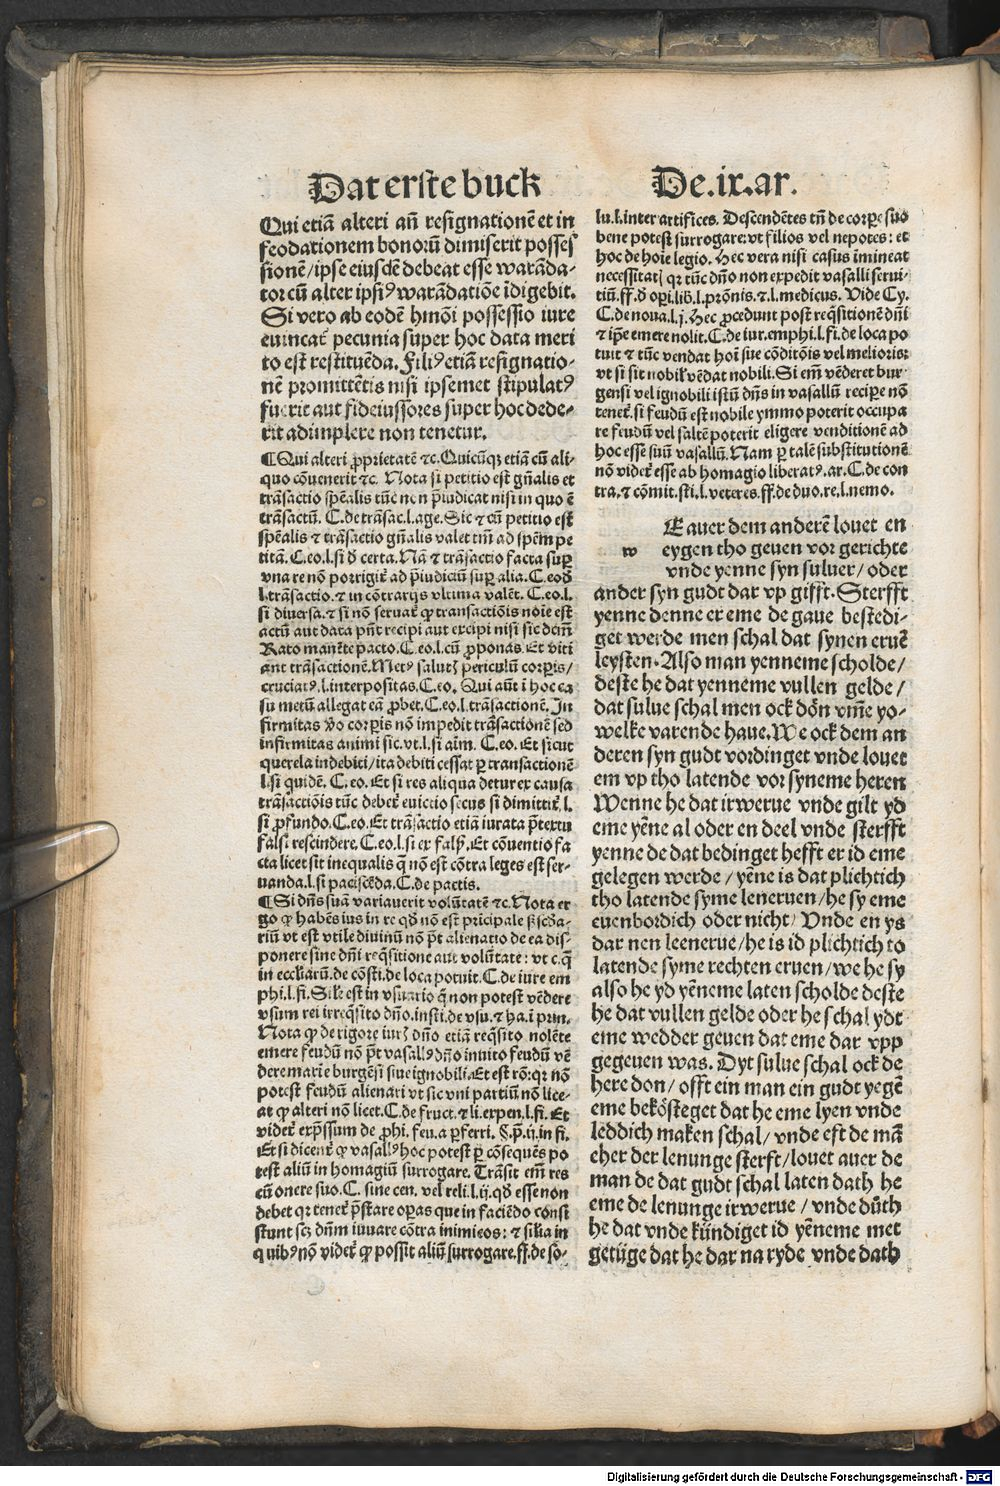 Dat erste buck
De.ix.ar.
Qui etiã alteri añ resignationẽ et in
feodationem bonorũ dimiserit posses
sionẽ/ipse eiusdẽ debeat esse warãda-
tor cũ alter ipsiꝰ warãdatiõe ĩdigebit.
Si vero ab eodẽ hmõi possessio iure
euincat᷑ pecunia super hoc data meri
to est restituẽda. Filiꝰ etiã resignatio-
nẽ promittẽtis nisi ipsemet stipulatꝰ
fuerit aut fideiussores super hoc dede-
rit adimplere non tenetur.
¶Qui alteri ꝓprietatẽ ⁊c. Quicũqꝫ etiã cũ ali-
quo cõuenerit ⁊c. Nota si petitio est gñalis et
trãsactio spẽalis tũc non p̃iudicat nisi in quo ẽ
trãsactũ. C.de trãsac.l.age. Sic ⁊ cũ petitio est
spẽalis ⁊ trãsactio gñalis valet tm̃ ad spẽm pe
titã. C.eo.l.si ď certa. Nã ⁊ trãsactio facta sup̱
vna re nõ porrigit᷑ ad p̃iudiciũ sup̱ alia. C.eoď
l.trãsactio.⁊ in cõtrarijs vltima valẽt. C.eo.l.
si diuersa.⁊ si nõ seruat᷑ ꝙ transactiõis noĩe est
actũ aut data pñt recipi aut excipi nisi sic dem̃
Rato manẽte pacto. C.eo.l.cũ ꝓponas. Et viti
ant trãsactionẽ. Metꝰ salutꝫ periculũ corpis/
cruciatꝰ.l.interpositas.C.eo. Qui aũt ĩ hoc ca
su metũ allegat eã ꝓbet.C.eo.l.trãsactionẽ. In
firmitas ṽo corpis nõ impedit trãsactionẽ sed
infirmitas animi sic.vt.l.si aĩm. C.eo. Et sicut
querela indebiti/ita debiti cessat p̱ transactionẽ
l.si quidẽ. C.eo. Et si res aliqua detur ex causa
trãsactiõis tũc debet᷑ euictio secus si dimittit᷑.l.
si ꝓ fundo.C.eo. Et trãsactio etiã iurata p̃textu
falsi rescindere.C.eo.l.si ex falsꝭ. Et cõuentio fa
cta licet sit inequalis q̃ nõ est cõtra leges est ser-
uanda.l.si paciscẽda.C.de pactis.
¶Si dñs suã variauerit volũtatẽ ⁊c. Nota er
go ꝙ habẽs ius in re qď nõ est prĩcipale
riũ vt est vtile diuinũ nõ põt alienatio de ea dis-
ponere sine dñi reqsitione aut volũtate : vt c.q̃
in eccliarũ.de cõsti.de loca potuit.C.de iure em
phi.l.fi. Sil̃r est in vsuario q̃ non potest vẽdere
vsum rei irreqsito dño.insti.de vsu.⁊ ha.ĩ prin.
Nota ꝙ de rigore iurꝫ dño etiã reqsito nolẽte
emere feudũ nõ põt vasallꝰ dño inuito feudũ vẽ
dere marie burgẽsi siue ignobili. Et est rõ: qꝛ nõ
potest feudũ alienari vt sic vni partiũ nõ lice-
at ꝙ alteri nõ licet. C.de fruct.⁊ li.expen.l.fi. Et
videt᷑ exp̃ssum de ꝓhi.feu.a p̱ferri. §.p̃.ij.in fi.
Et si dicent᷑ ꝙ vasallꝰ hoc potest p̱ cõsequẽs po
test aliũ in homagiũ surrogare. Trãsit em̃ res
cũ onere suo.C. sine cen. vel reli.l.ij.qď esse non
debet qꝛ tenet᷑ p̃stare op̱as que in faciẽdo consi
stunt scꝫ dñm iuuare cõtra inimicos: ⁊ silia in
quibꝰ nõ videt᷑ ꝙ possit aliũ surrogare.ff.de so-
lu.l.inter artifices. Descendẽtes tñ de corpe suo
bene potest surrogare:vt filios vel nepotes: et
hoc de hoĩe legio. Hec vera nisi casus ĩmineat
necessitatꝫ qꝛ tũc dño non expedit vasalli serui-
tiũ.ff.ď op̱i.lib.l.prõnis.⁊.l.medicus. Vide Cy.
C.de noua.l.j. Hec ꝓcedunt post reqsitionẽ dñi
⁊ ip̃e emere nolit.C.de iur.emphi.l.fi.de loca po
tuit ⁊ tũc vendat hoĩ sue cõditõis vel melioris:
vt si sit nobil̃ vẽdat nobili. Si em̃ vẽderet bur-
gensi vel ignobili istũ dñs in vasallũ recip̱e nõ
tenet᷑.si feudũ est nobile ymmo poterit occupa
re feudũ vel saltẽ poterit eligere venditionẽ ad
hoc esse suũ vasallũ. Nam p̱ talẽ substitutionẽ
nõ videt᷑ esse ab homagio liberatꝰ.ar.C.de con
tra.⁊ cõmit.sti.l.veteres.ff.de duo.re.l.nemo.
w
Eauer dem anderẽ louet en
eygen tho geuen vor gerichte
vnde yenne syn suluer/ oder
ander syn gudt dar vp gifft. Sterfft
yenne denne er eme de gaue bestedi-
get werde men schal dat synen eruẽ
leysten. Also man yenneme scholde/
deste he dat yenneme vullen gelde/
dat sulue schal men ock dõn vm̃e yo-
welke varende haue. We ock dem an
deren syn gudt vordinget vnde louet
em vp tho latende vor syneme heren
Wenne he dat irwerue vnde gilt yd
eme yẽne al oder en deel vnde sterfft
yenne de dat bedinget hefft er id eme
gelegen werde/ yẽne is dat plichtich
tho latende syme leneruen/he sy eme
euenbordich oder nicht/ Vnde en ys
dar nen leenerue/he is id plichtich to
latende syme rechten eruen/we he sy
also he yd yẽneme laten scholde deste
he dat vullen gelde oder he schal ydt
eme wedder geuen dat eme dar vpp
gegeuen was. Dyt sulue schal ock de
here don/ offt ein man ein gudt yegẽ
eme bekösteget dat he eme lyen vnde
leddich maken schal/ vnde eft de mã
eher der lenunge sterft/louet auer de
man de dat gudt schal laten dath he
eme de lenunge irwerue/ vnde dũth
he dat vnde kündiget id yẽneme met
getüge dat he dar na ryde vnde dath
Digitalisierung gefördert durch die Deutsche Forschungsgemeinschaft - DFG